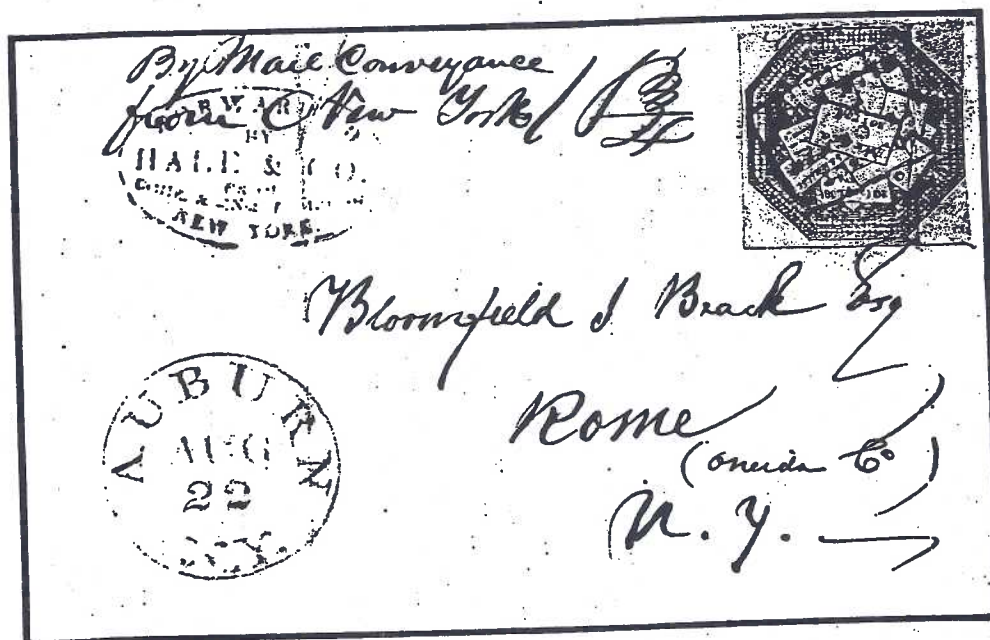 By Mail Conveyance
from New York
HALE & CO.
NEW YORK.
Bloomfield J Beach Esq
Rome
(Oneida Co)
N. Y.
AUBURN
AUG
22
N.Y.